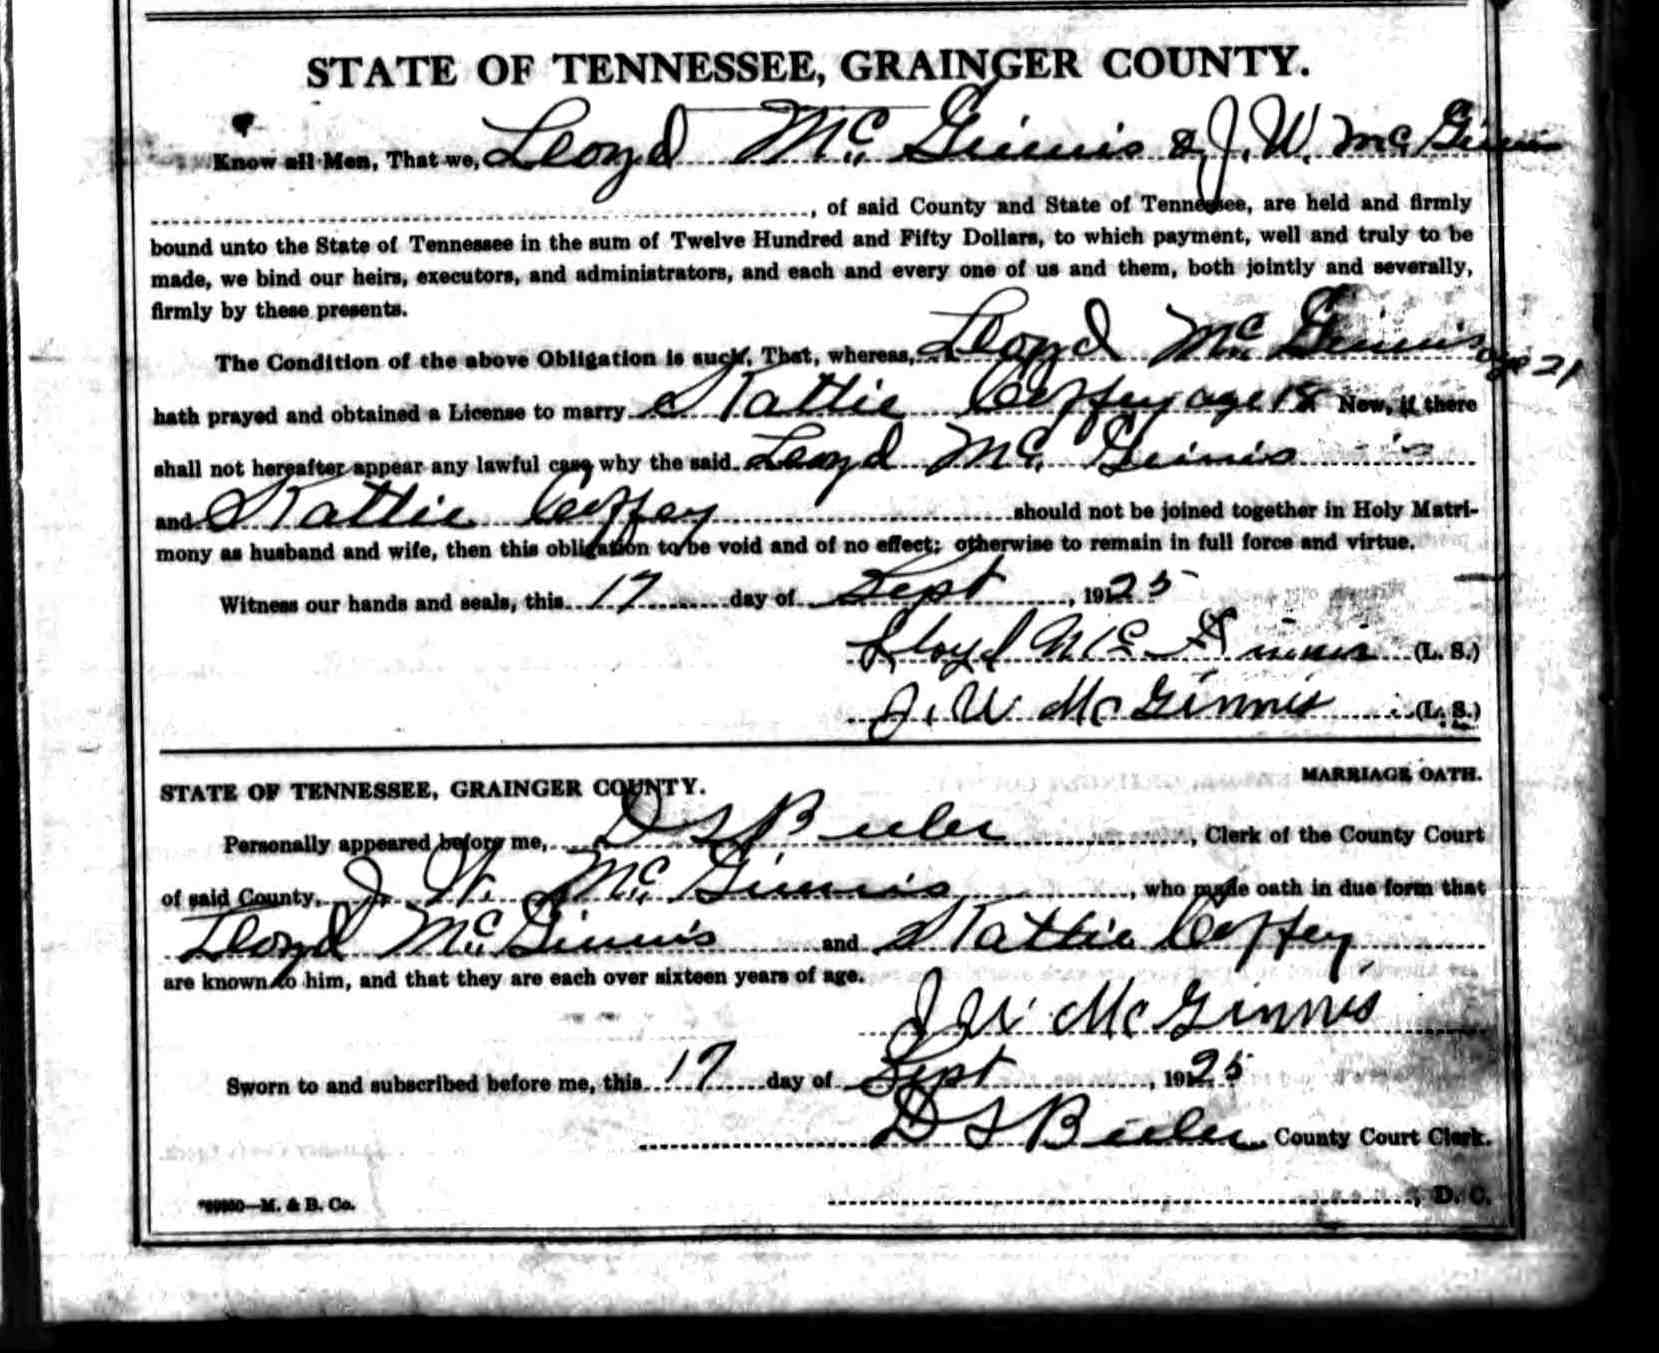 STATE OF TENNESSEE, GRAINGER COUNTY.
Know all Men, That we, Lloyd Mc Ginnis & J. W. Mc Ginnis
, of said County and State of Tennessee, are held and firmly
bound unto the State of Tennessee in the sum of Twelve Hundred and Fifty Dollars, to which payment, well and truly to be
made, we bind our heirs, executors, and administrators, and each and every one of us and them, both jointly and severally,
firmly by these presents.
The Condition of the above Obligation is such, That, whereas, Lloyd Mc Ginnis age 21
hath prayed and obtained a License to marry Kattie Coffey age 18 Now, if there
shall not hereafter appear any lawful case why the said Lloyd Mc Ginnis
and Kattie Coffey should not be joined together in Holy Matri-
mony as husband and wife, then this obligation to be void and of no effect; otherwise to remain in full force and virtue.
Witness our hands and seals, this 17 day of Sept, 1925
Lloyd Mc Ginnis (L. S.)
J. W McGinnis (L. S.)
MARRIAGE OATH.
STATE OF TENNESSEE, GRAINGER COUNTY.
Personally appeared before me, D S Beeler, Clerk of the County Court
of said County, J. W. Mc Ginnis, who made oath in due form that
Lloyd Mc Ginnis and Kattie Coffey
are known to him, and that they are each over sixteen years of age.
J W McGinnis
Sworn to and subscribed before me, this 17 day of Sept, 1925
D S Beeler County Court Clerk.
, D. C.
M. & B. Co.